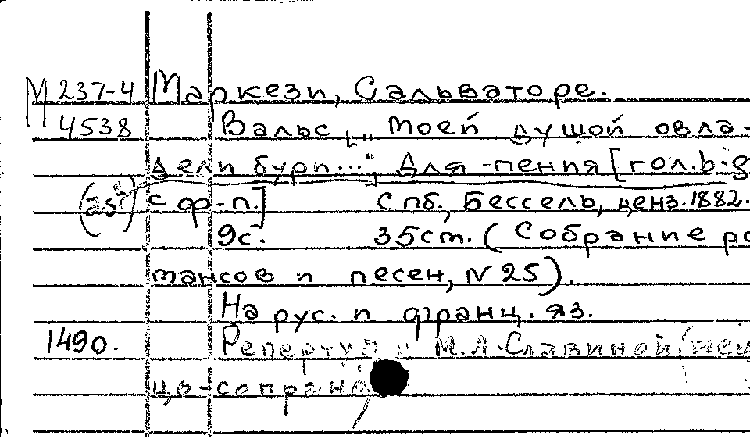 М 237-4 Маркези, Сальваторе.
4538 Вальс „Моей душой овла-
дели бури...", Для пения [гол. b-g
(as²) с ф-п.] Спб., Бессель, ценз. 1882.
9с. 35cm. (Собрание ро
мансов и песен, N 25).
На рус. и франц. яз.
1490. Репертуар М. А. Славиной (мец
цо-сопрано